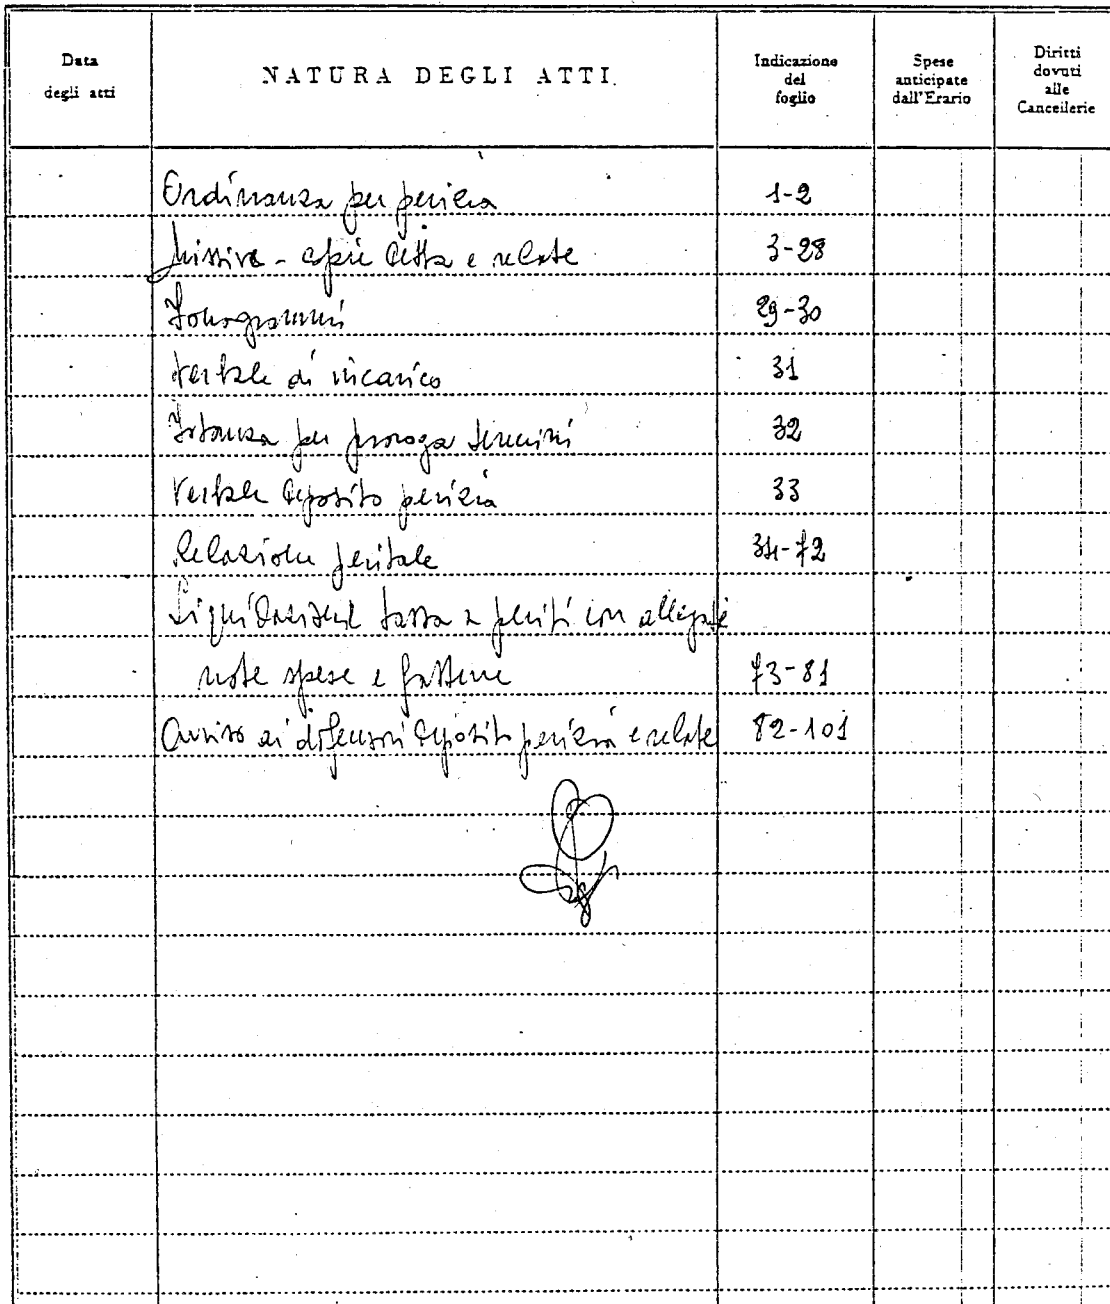 Data
degli atti
NATURA DEGLI ATTI.
Indicazione
del
foglio
Spese
anticipate
dall'Erario
Diritti
dovuti
alle
Cancellerie
Ordinanza per perizia 1-2
Missive - copie detta e relate 3-28
Fonogrammi 29-30
Verbale di incarico 31
Istanza per proroga termini 32
Verbale deposito perizia 33
Relazione peritale 34-72
Liquidazione tassa a periti con allegate
note spese e fatture 73-81
Avviso ai difensori deposito perizia e relate 82-101